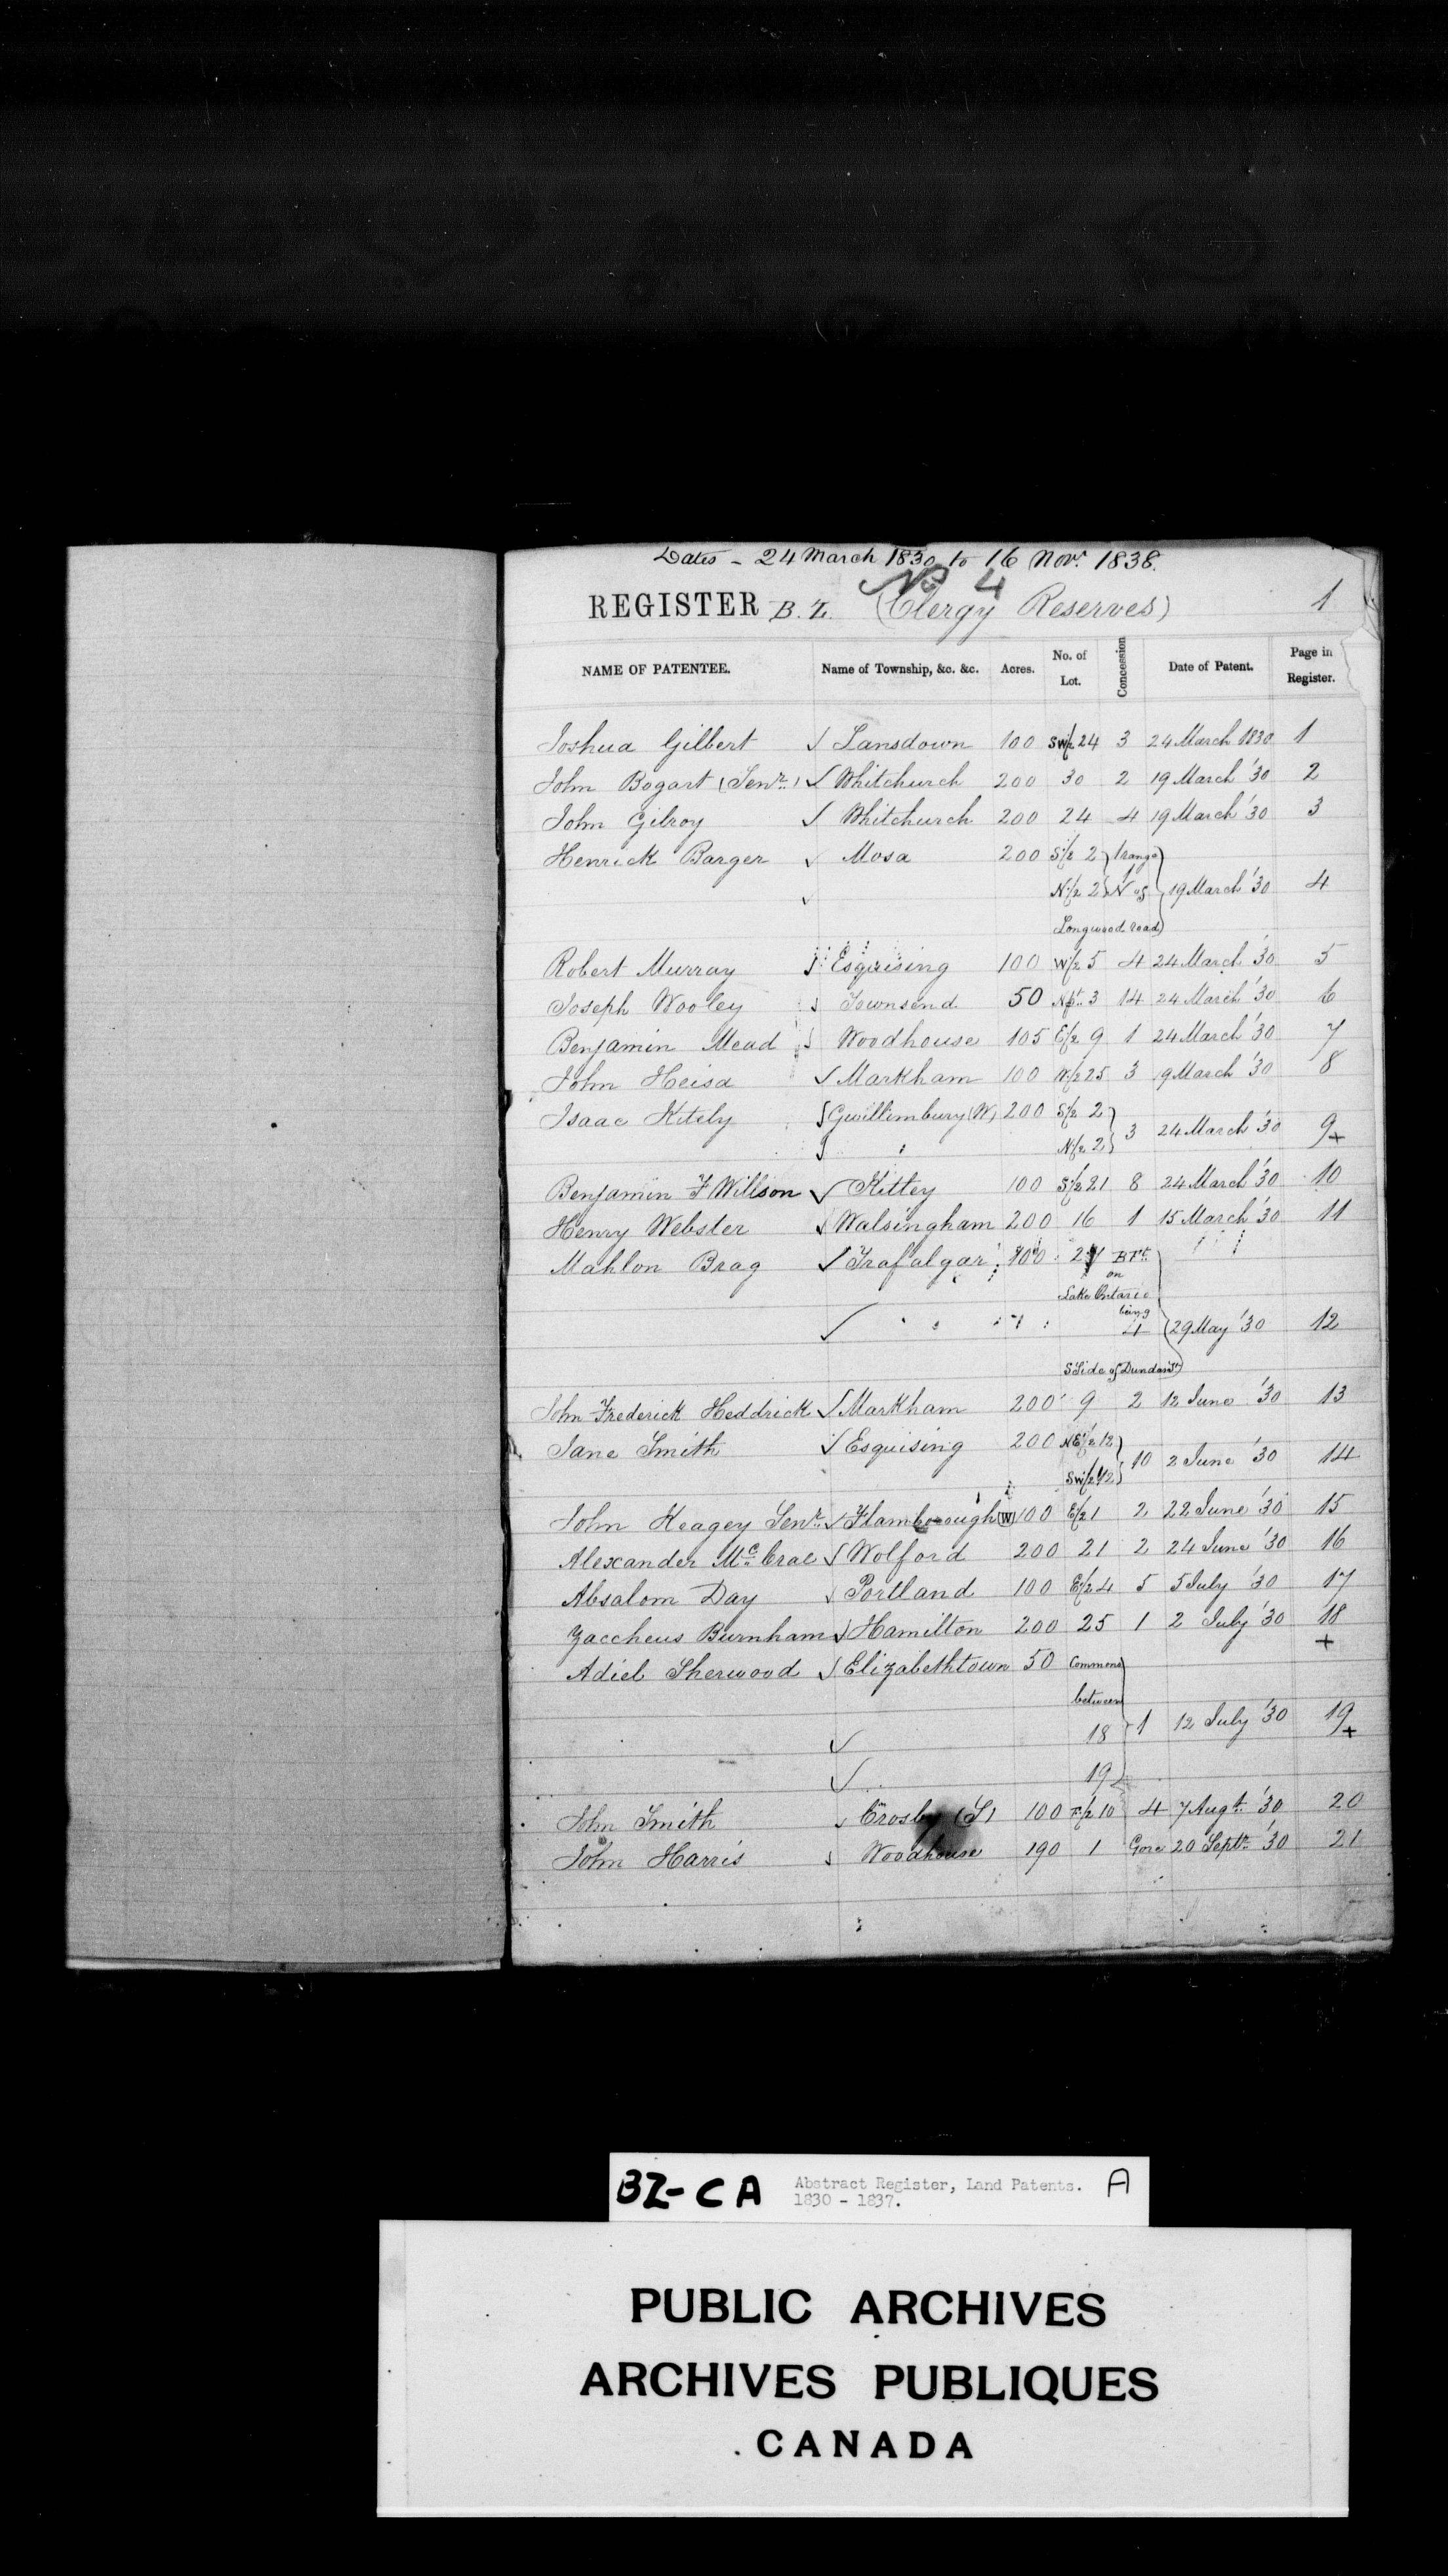 Dates - 24 March 1830 to 16 Nov.r 1838.
No 4
REGISTER B.Z. (Clergy Reserves) 1
NAME OF PATENTEE. Name of Township, &c. &c. Acres. No. of Lot. Concession Date of Patent. Page in Register.
Joshua Gilbert ✓ Lansdown 100 SW/2 24 3 24 March 1830 1
John Bogart (Senr.) ✓ Whitchurch 200 30 2 19 March '30 2
John Gilroy ✓ Whitchurch 200 24 4 19 March '30 3
Henrick Barger ✓ Mosa 200 S/2 2 } 1 range }
✓ N/2 2 } N of } 19 March '30 4
Longwood road)
Robert Murray ✓ Esquising 100 W/2 5 4 24 March '30 5
Joseph Wooley ✓ Townsend 50 Npt. 3 14 24 March '30 6
Benjamin Mead ✓ Woodhouse 105 E/2 9 1 24 March '30 7
John Heisa ✓ Markham 100 W/2 25 3 9 March '30 8
Isaac Kitely ✓ Gwillimbury (W) 200 S/2 2 }
✓ " N/2 2 } 3 24 March '30 9+
Benjamin F Willson ✓ Kitley 100 S/2 21 8 24 March '30 10
Henry Webster ✓ Walsingham 200 16 1 15 March '30 11
Mahlon Brag ✓ Trafalgar 100 B Ft.
on
Lake Ontario
being
✓ " " 4 (29 May '30 12
S Side of Dundas St)
John Frederick Heddrick ✓ Markham 200 9 2 12 June '30 13
Jane Smith ✓ Esquising 200 NE/2 12 }
SW/2 12 } 10 2 June '30 14
John Keagey Senr. ✓ Flamborough (W) 100 E/2 1 2 22 June '30 15
Alexander Mc Crae ✓ Wolford 200 21 2 24 June '30 16
Absalom Day ✓ Portland 100 E/2 4 5 5 July '30 17
Zaccheus Burnham ✓ Hamilton 200 25 1 2 July '30 18
+
Adiel Sherwood ✓ Elizabethtown 50 Commons }
between
✓ 18 } 1 12 July '30 19+
✓ 19 }
John Smith ✓ Crosby (S) 100 E/2 10 4 7 Augt. '30 20
John Harris ✓ Woodhouse 190 1 Gore 20 Septr. '30 21
BZ-CA Abstract Register, Land Patents. A
1830 - 1837.
PUBLIC ARCHIVES
ARCHIVES PUBLIQUES
CANADA